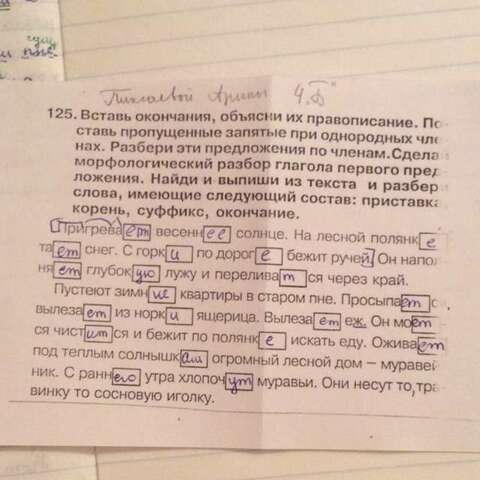 Пиксаевой Арины 4 „Б"
125. Вставь окончания, объясни их правописание. По
ставь пропущенные запятые при однородных чле
нах. Разбери эти предложения по членам. Сдела
морфологический разбор глагола первого пред
ложения. Найди и выпиши из текста и разбер
слова, имеющие следующий состав: приставка
корень, суффикс, окончание.
Пригревает весеннее солнце. На лесной полянке
тает снег. С горки по дороге бежит ручей. Он напо
няет глубокую лужу и переливатся через край.
Пустеют зимние квартиры в старом пне. Просыпает с
вылезает из норки ящерица. Вылезает еж. Он моет
ся чистится и бежит по полянке искать еду. Оживает
под теплым солнышкам огромный лесной дом – муравей
ник. С раннего утра хлопочут муравьи. Они несут то, тра
винку то сосновую иголку.